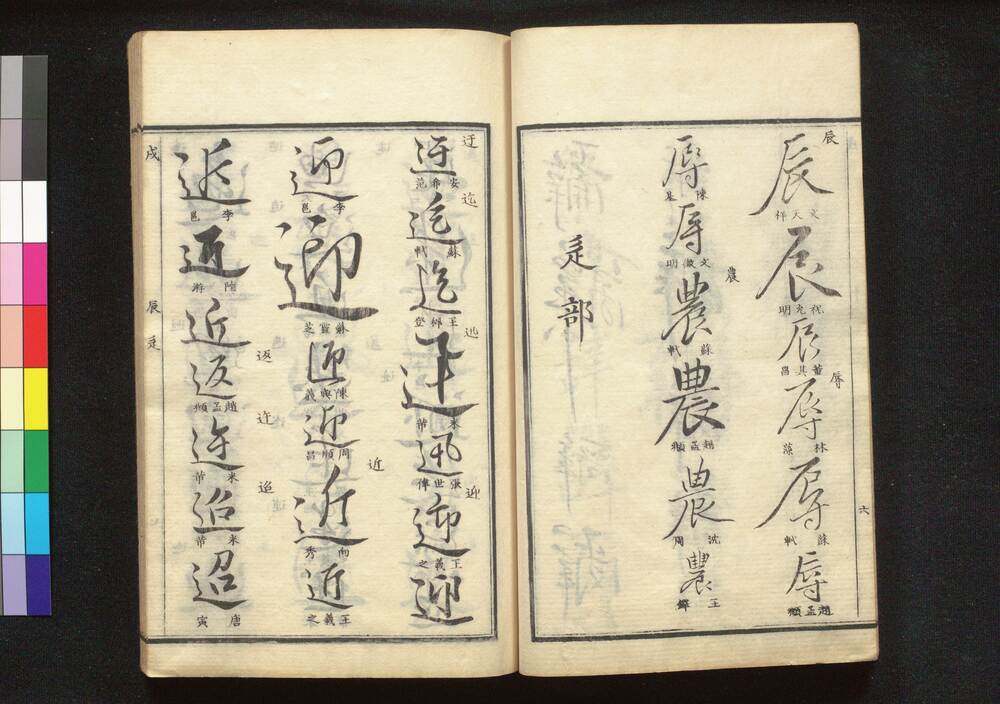 辰
辰 文天祥
辰 祝允明
辰 董其昌
辱
辱 林藻
辱 蘇軾
辱 趙孟頫
六
辱 陳
辱 文徵明
農
農 蘇軾
農 趙孟頫
農 沈周
農 王鐸
辵部
迂
迂 安希范
迄
迄 蘇軾
迄 王穉登
迅
迅 米芾
迅 張世偉
迎
迎 王羲之
迎
迎 李邕
迎 蘇靈芝
迎 陳與義
迎 周順昌
近
近 向秀
近 王羲之
近 李邕
近 陸游
近
返
返 趙孟頫
迕
迕 米芾
迢
迢 米芾
迢 唐寅
戌
辰
辵